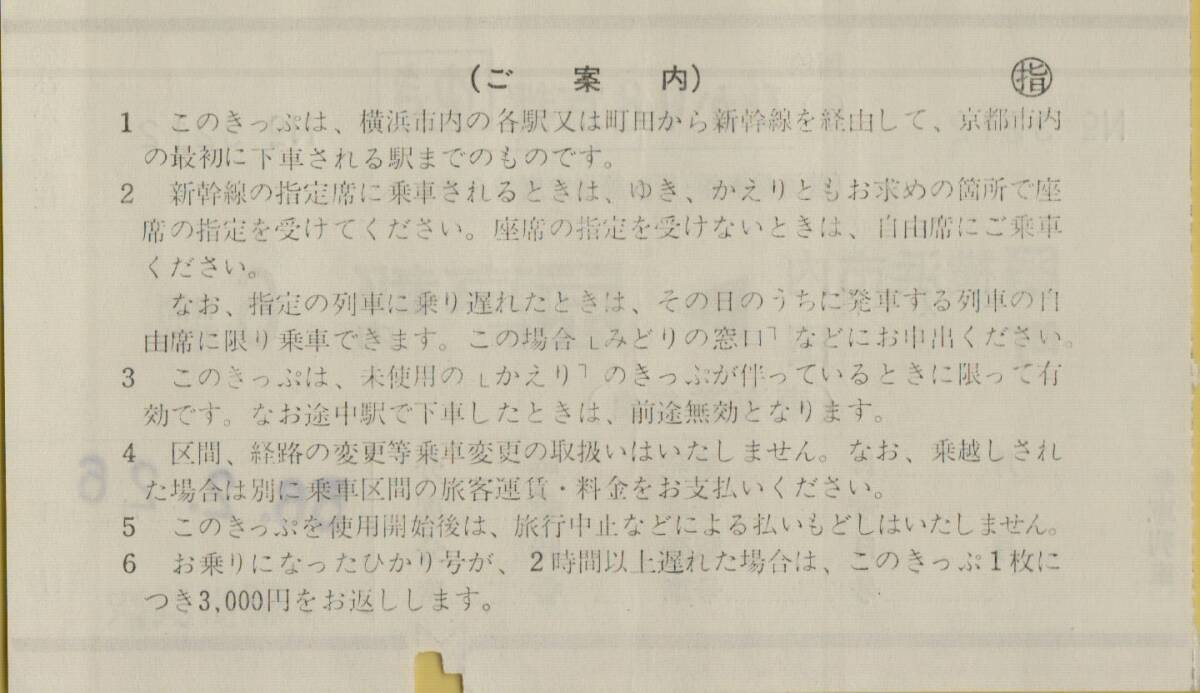 (ご案内) ㊟指
1 このきっぷは、横浜市内の各駅又は町田から新幹線を経由して、京都市内
の最初に下車される駅までのものです。
2 新幹線の指定席に乗車されるときは、ゆき、かえりともお求めの箇所で座
席の指定を受けてください。座席の指定を受けないときは、自由席にご乗車
ください。
なお、指定の列車に乗り遅れたときは、その日のうちに発車する列車の自
由席に限り乗車できます。この場合「みどりの窓口」などにお申出ください。
3 このきっぷは、未使用の「かえり」のきっぷが伴っているときに限って有
効です。なお途中駅で下車したときは、前途無効となります。
4 区間、経路の変更等乗車変更の取扱いはいたしません。なお、乗越しされ
た場合は別に乗車区間の旅客運賃・料金をお支払いください。
5 このきっぷを使用開始後は、旅行中止などによる払いもどしはいたしません。
6 お乗りになったひかり号が、2時間以上遅れた場合は、このきっぷ1枚に
つき3,000円をお返しします。